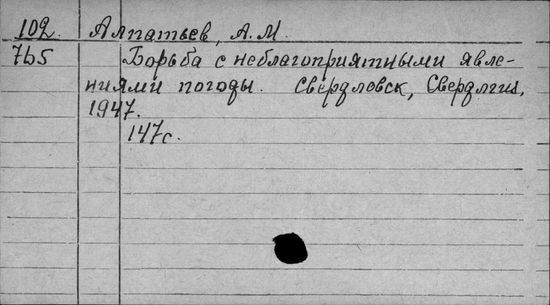 102. Алпатьев, А.М.
765 Борьба с неблагоприятными явле-
ниями погоды. Свердловск, Свердлгиз,
1947.
147с.